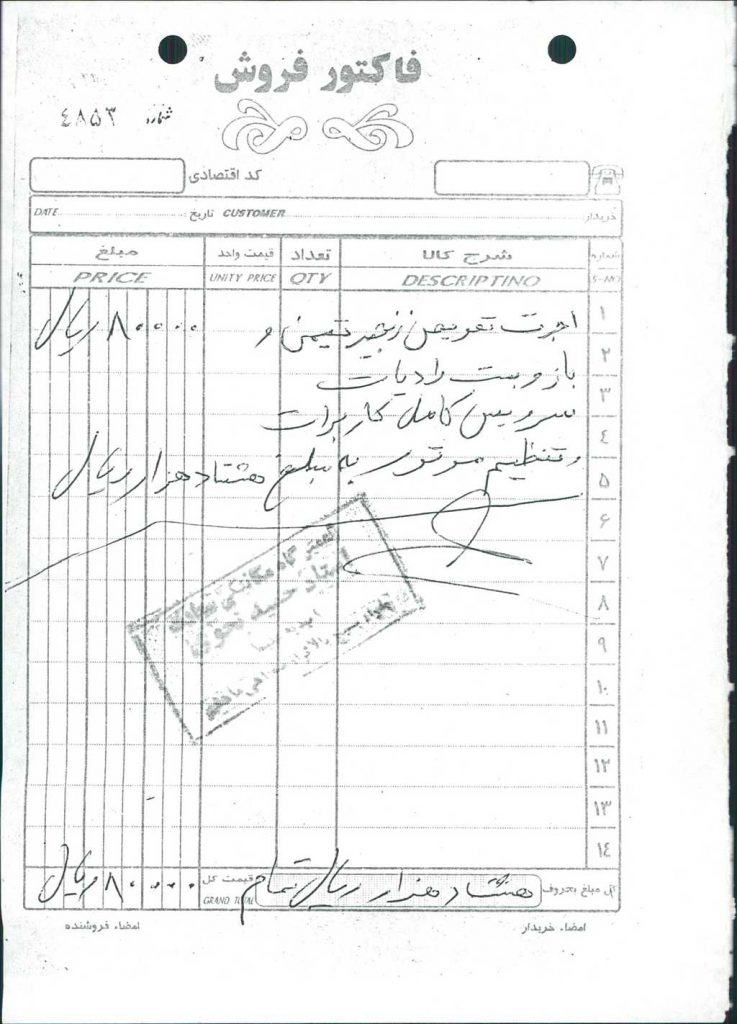 فاکتور فروش
شماره ٤٨٥٣
کد اقتصادی
خریدار CUSTOMER تاریخ DATE
شماره شرح کالا تعداد قیمت واحد مبلغ
S-NO DESCRIPTINO QTY UNITY PRICE PRICE
۱
اجرت تعویض زنجیر تیمن و ۸۰۰۰۰ ریال
۲
باز و بست رادیات
۳
سرویس کامل کاربرات
٤
و تنظیم موتور به مبلغ هشتاد هزار ریال
۵
۶
۷
۸
۹
۱۰
۱۱
۱۲
۱۳
۱٤
تعمیرگاه مکانیکی
استاد حسین
کل مبلغ بحروف هشتاد هزار ریال تمام قیمت کل ۸۰۰۰۰ ریال
GRAND TOTAL
امضاء خریدار امضاء فروشنده